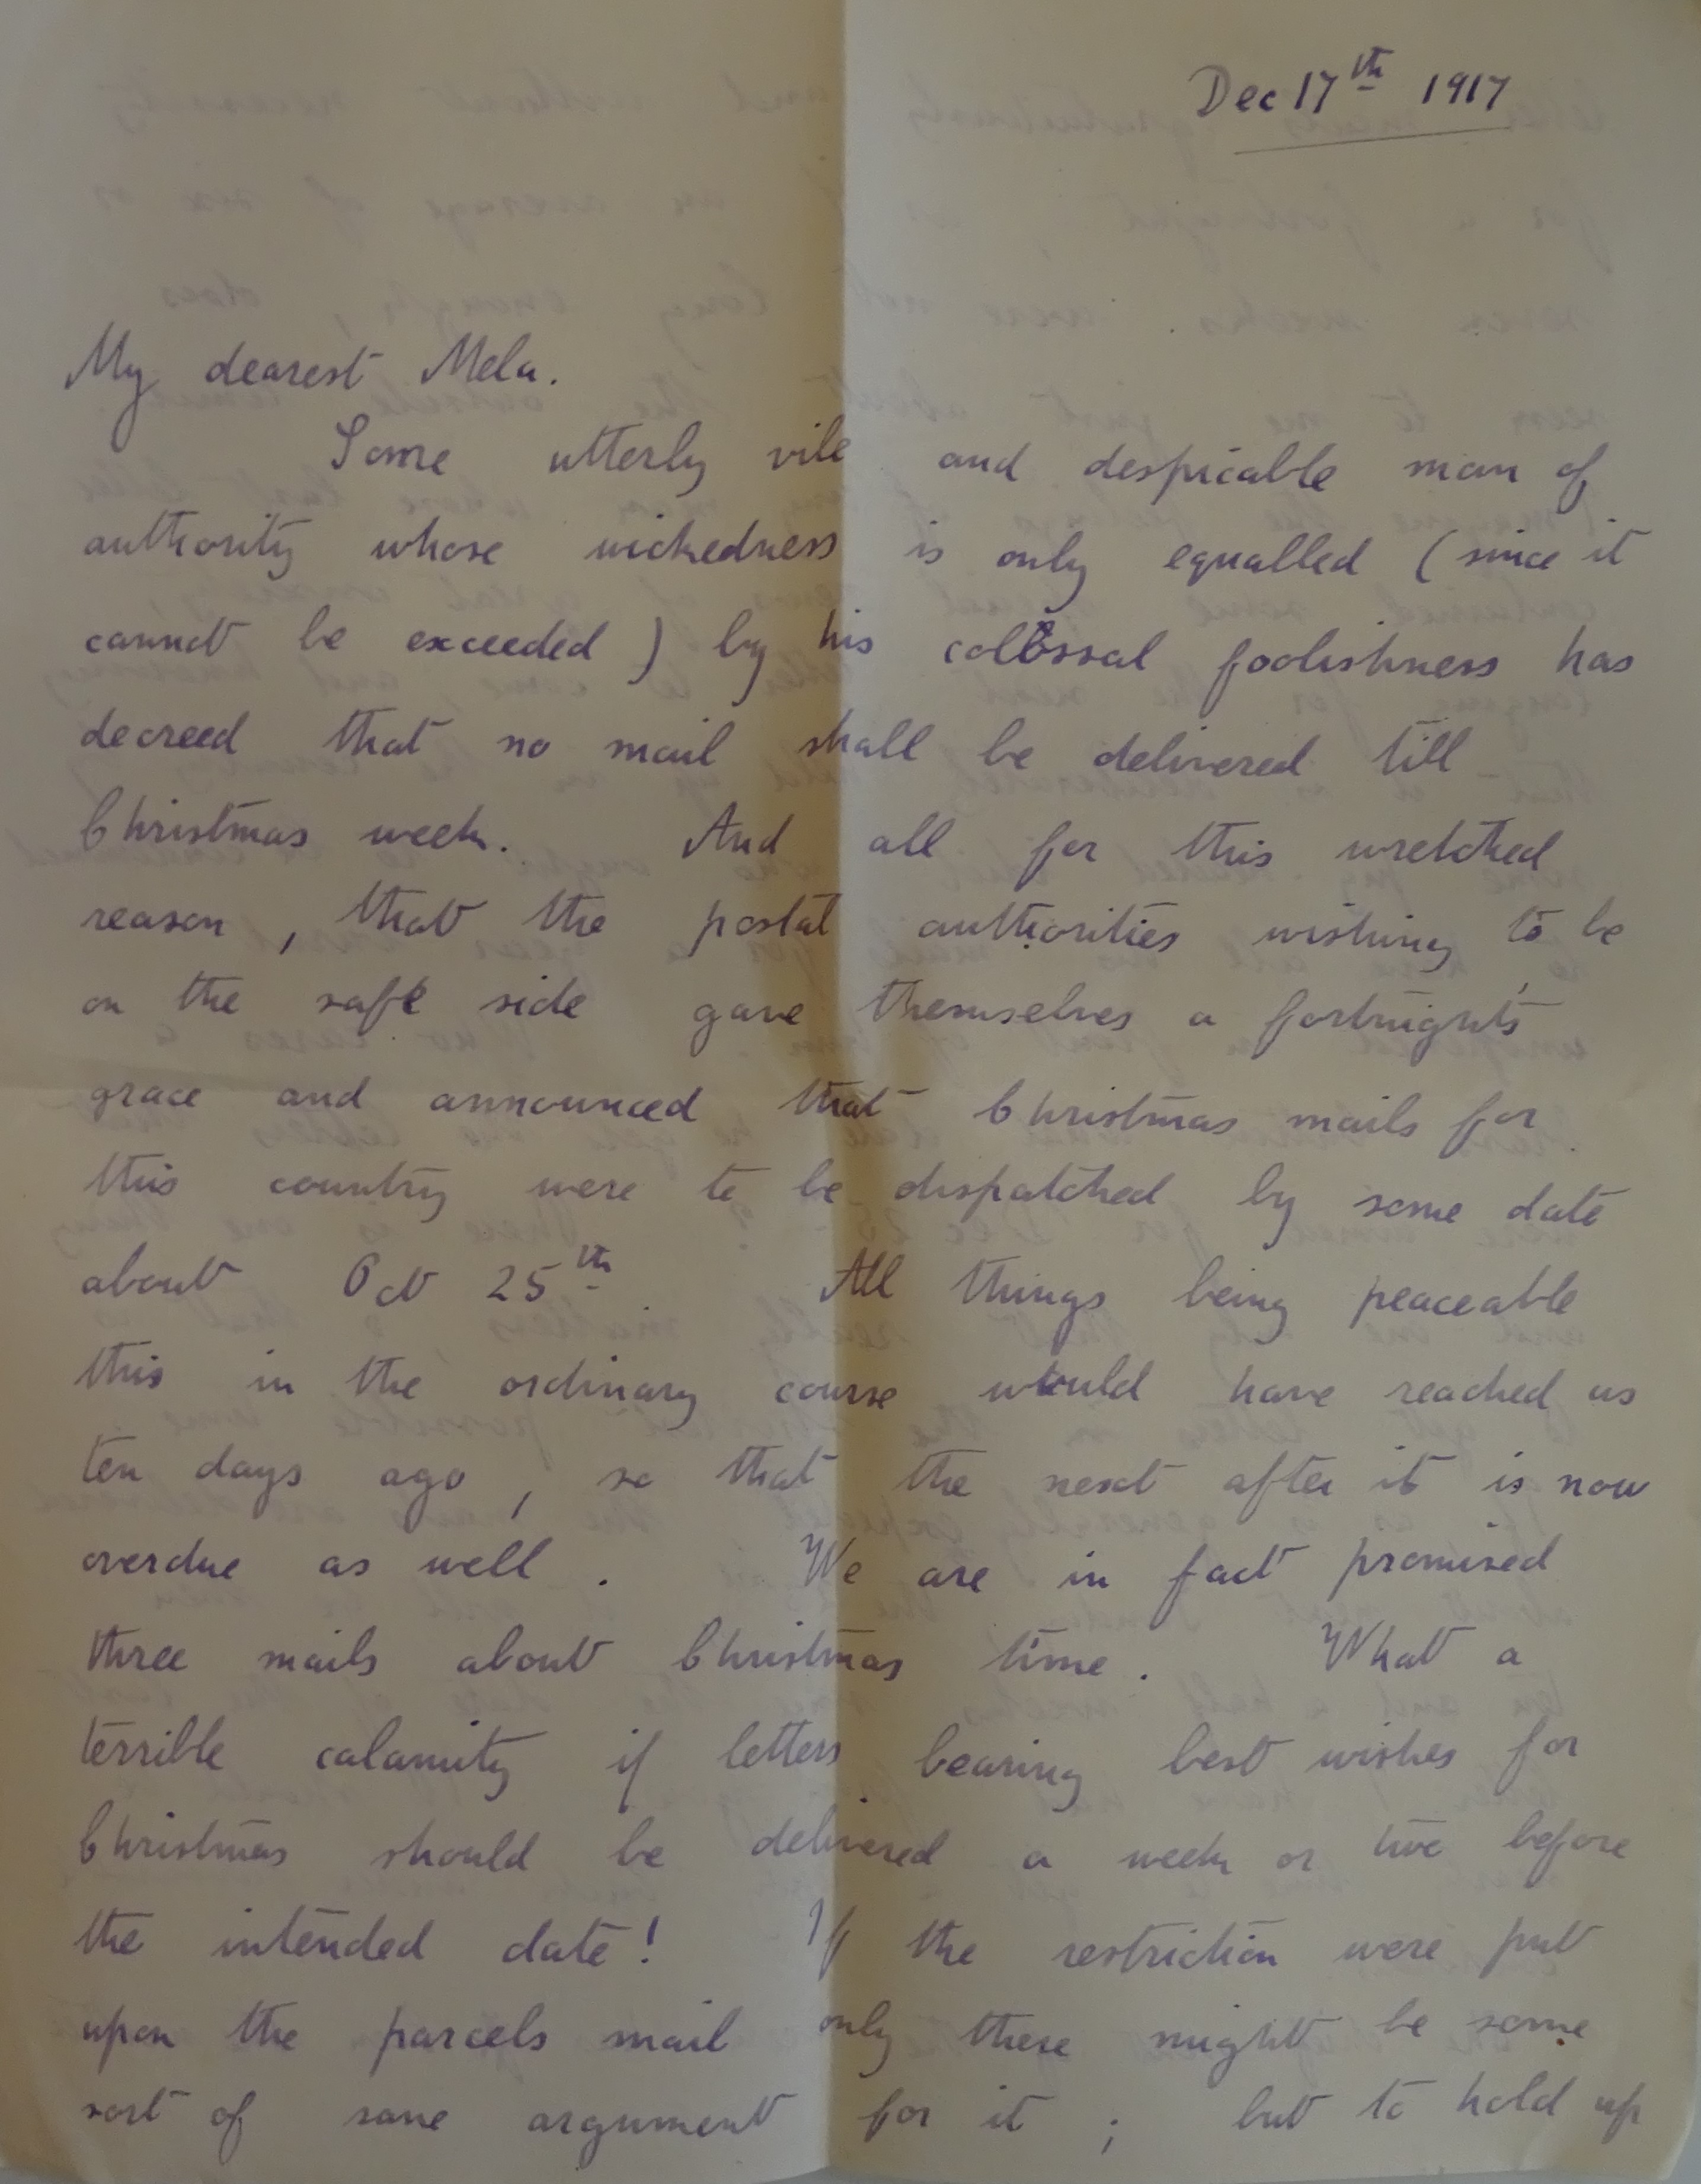 Dec 17th 1917
My dearest Mela.
Some utterly vile and despicable man of
authority whose wickedness is only equalled (since it
cannot be exceeded) by his colossal foolishness has
decreed that no mail shall be delivered till
Christmas week. And all for this wretched
reason, that the postal authorities wishing to be
on the safe side gave themselves a fortnight's
grace and announced that Christmas mails for
this country were to be dispatched by some date
about Oct 25th. All things being peaceable
this in the ordinary course would have reached us
ten days ago, so that the next after it is now
overdue as well. We are in fact promised
three mails about Christmas time. What a
terrible calamity if letters bearing best wishes for
Christmas should be delivered a week or two before
the intended date! If the restriction were put
upon the parcels mail only there might be some
sort of sane argument for it; but to hold up